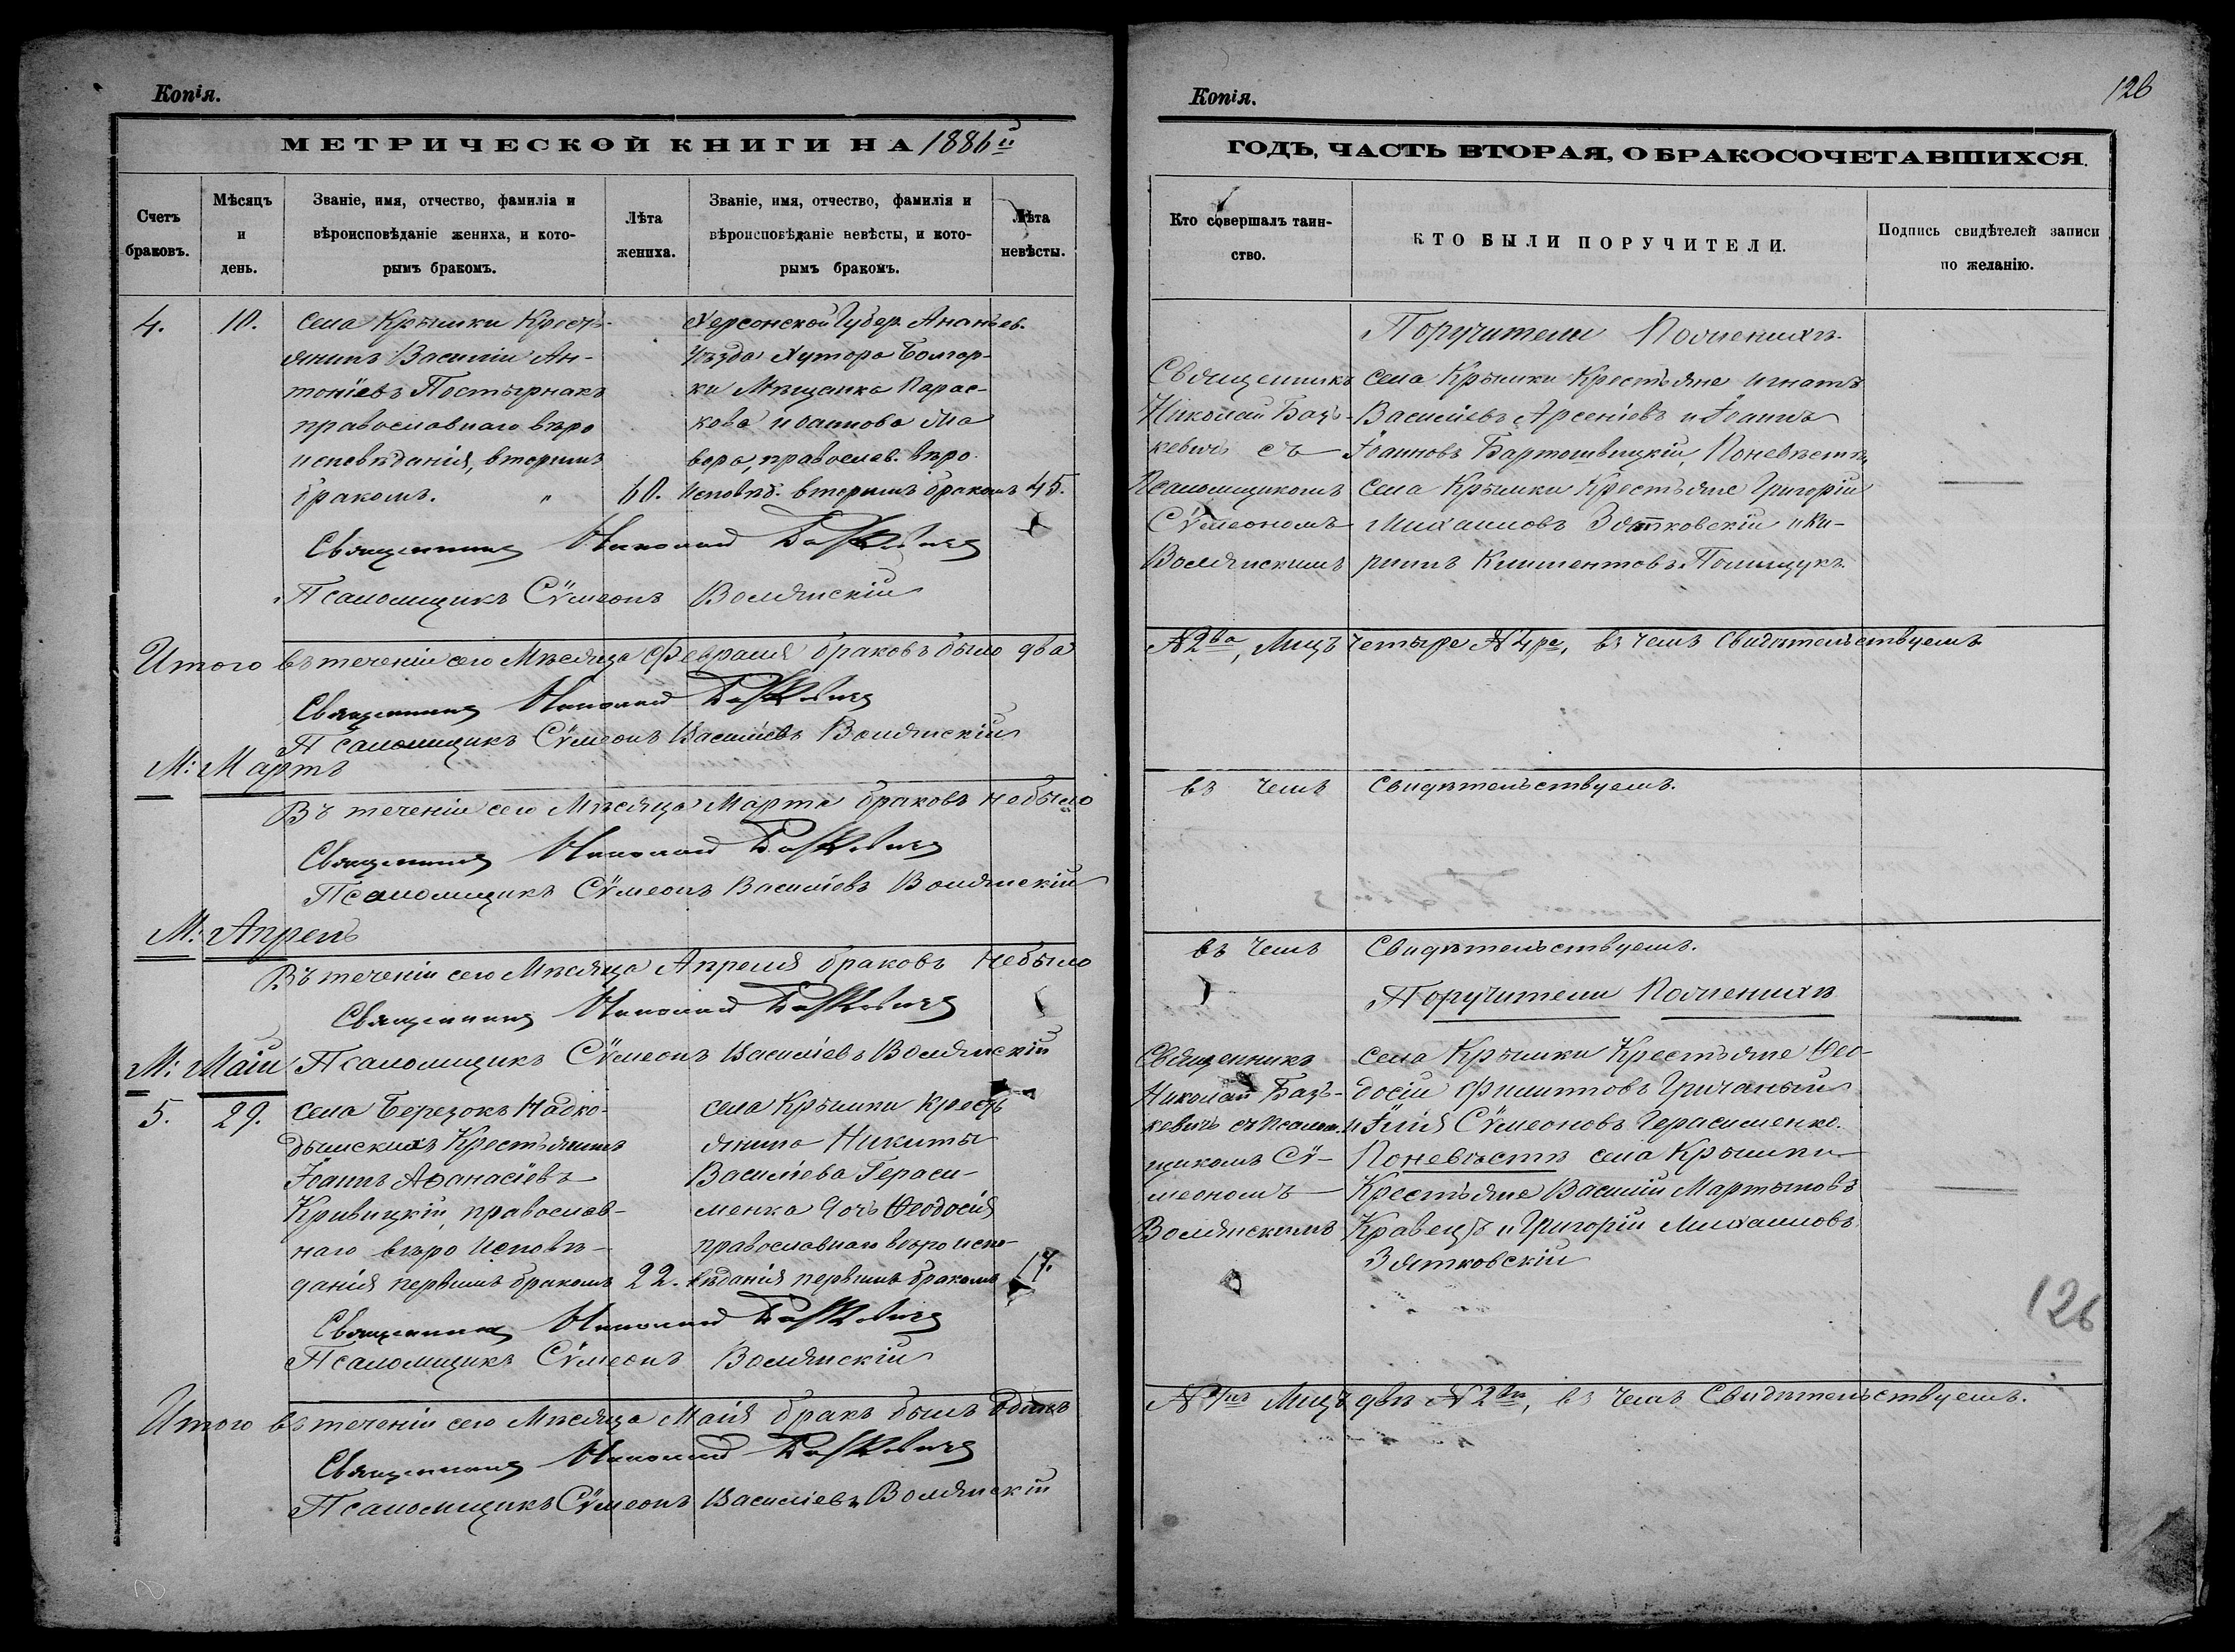 Копія.
МЕТРИЧЕСКОЙ КНИГИ НА 1886й
Счетъ браковъ.
Мѣсяцъ и день.
Званіе, имя, отчество, фамилія и вѣроисповѣданіе жениха, и которымъ бракомъ.
Лѣта жениха.
Званіе, имя, отчество, фамилія и вѣроисповѣданіе невѣсты, и которымъ бракомъ.
Лѣта невѣсты.
4.
10.
села Крымки Крестъ-
янинъ Василій Ан-
тоніевъ Постырнакъ
православнаго вѣро
исповѣданія, вторымъ
бракомъ. "
60.
Херсонской Губер. Ананьев.
Уѣзда Хутора Болгар-
ки Мѣщанка Парас-
кева Иоаннова Ма
вѣро
Исповѣд. вторымъ бракомъ
45.
Священникъ Николай Базкевичъ
Псаломщикъ Сѵмеонъ Волянскій
Итого въ теченіи сего Мѣсяца Февраля браковъ было два
Священникъ Николай Базкевичъ
Псаломщикъ Сѵмеонъ Василіевъ Волянскій
М: Мартъ
Въ теченіи сего Мѣсяца Марта браковъ небыло
Священникъ Николай Базкевичъ
Псаломщикъ Сѵмеонъ Василіевъ Волянскій
М: Апрель
Въ теченіи сего Мѣсяца Апреля браковъ небыло
Священникъ Николай Базкевичъ
М: Маій
Псаломщикъ Сѵмеонъ Василіевъ Волянскій
5.
29.
села Березокъ Надко-
дымскихъ Крестьянинъ
Іоаннъ Аѳанасіевъ
Кривицкій, православ-
наго вѣро Исповѣ-
данія первымъ бракомъ
22.
села Крымки Крестъ
янина Никиты
Василіева Гераси-
менка дочь Ѳеодосія
православнаго вѣроиспо-
вѣданія первымъ бракомъ
17.
Священникъ Николай Базкевичъ
Псаломщикъ Сѵмеонъ Волянскій
Итого въ теченіи сего Мѣсяца Маія бракъ былъ Одинъ
Священникъ Николай Базкевичъ
Псаломщикъ Сѵмеонъ Василіевъ Волянскій
Копія.
126
ГОДЪ, ЧАСТЬ ВТОРАЯ, О БРАКОСОЧЕТАВШИХСЯ.
Кто совершалъ таинство.
КТО БЫЛИ ПОРУЧИТЕЛИ.
Подпись свидѣтелей записи по желанію.
Священникъ
Николай Базъ-
кевичъ съ
Псаломщикомъ
Сѵмеономъ
Волянскимъ
Поручители Поженихѣ
села Крымки Крестьяне Игнатъ
Васильевъ Арсеніевъ и Іоаннъ
Іоанновъ Бартошвицкій, Поневѣстѣ,
села Крымки Крестьяне Григорій
Михаиловъ Зятковскій и Ки-
рилъ Климентовъ Полищукъ.
№ 2ва, Лицъ четыре № 4ре, въ чемъ Свидѣтельствуемъ
въ чемъ Свидѣтельствуемъ.
въ чемъ Свидѣтельствуемъ.
Священникъ
Николай Базъ-
кевичъ съ Псалом.
щикомъ Сѵ-
меономъ
Волянскимъ
Поручители Поженихѣ
села Крымки Крестьяне Ѳео-
досій Филипповъ Гричаный
и Илія Сѵмеоновъ Герасименко.
Поневѣстѣ села Крымки
Крестьяне Василій Мартыновъ
Кравецъ и Григорій Михаиловъ
Зятковскій
126
Лицъ двѣ № 2вѣ, въ чемъ Свидѣтельствуемъ.